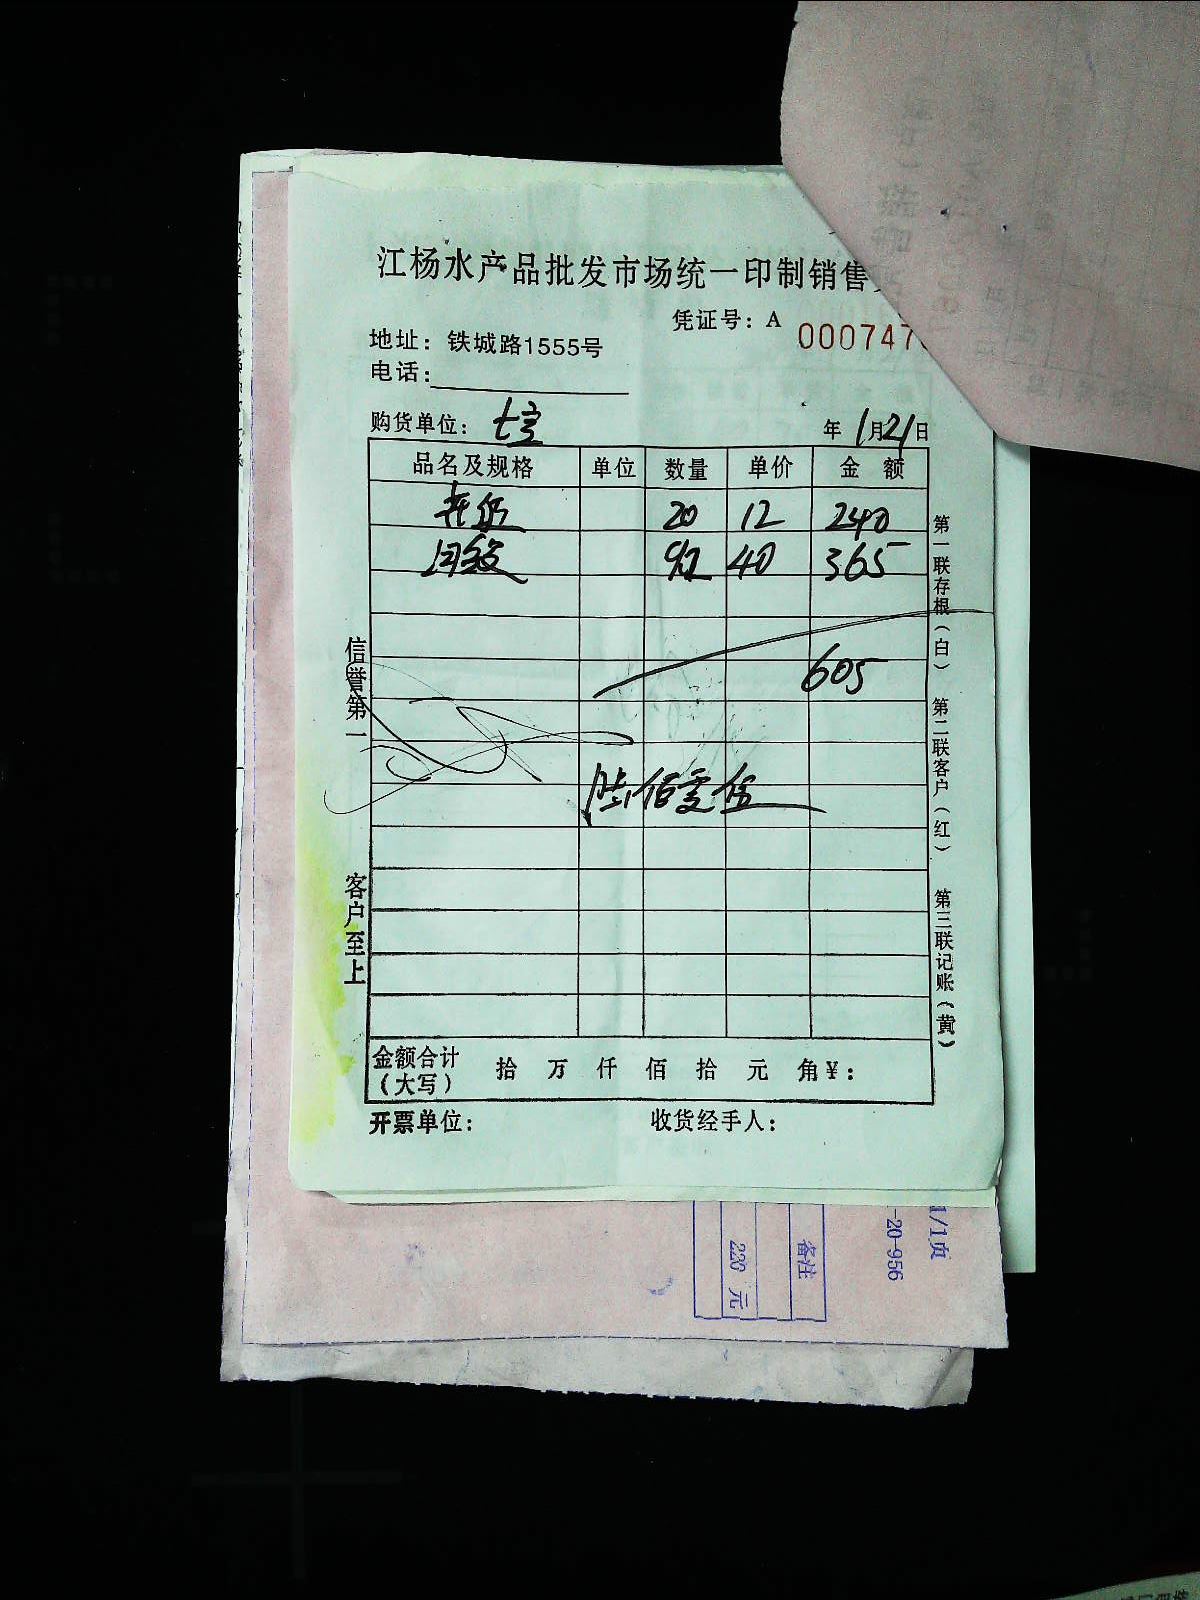 江杨水产品批发市场统一印制销售
凭证号：A 000747
地址：铁城路1555号
电话：
购货单位：
年 1月21日
品名及规格 单位 数量 单价 金额
20 12 240
40 365
605
陆佰零伍
信誉第一
客户至上
第一联存根（白） 第二联客户（红） 第三联记账（黄）
金额合计（大写） 拾 万 仟 佰 拾 元 角 ¥：
开票单位： 收货经手人：
1/1页
-20-956
备注
220 元